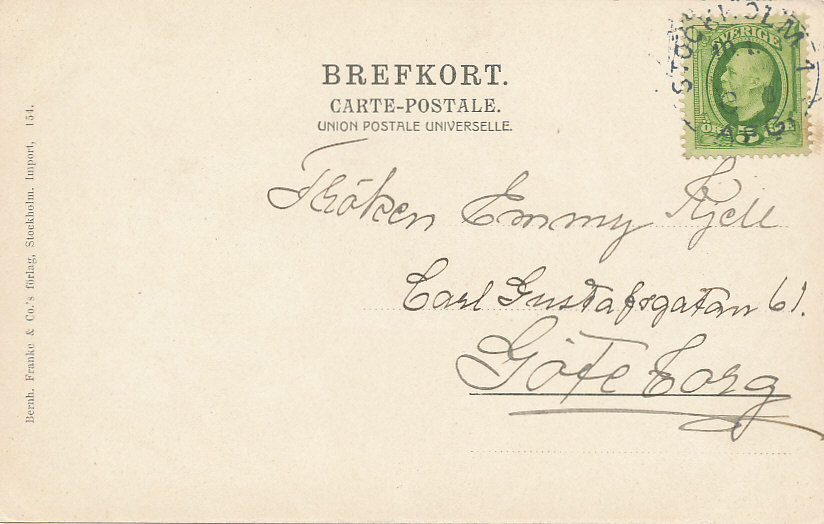 BREFKORT.
CARTE-POSTALE.
UNION POSTALE UNIVERSELLE.
STOCKHOLM 1
SVERIGE
Fröken Emmy Kjell
Carl Gustafsgatan 61.
Göteborg
Bernh. Franke & Co.'s förlag, Stockholm. Import, 154.